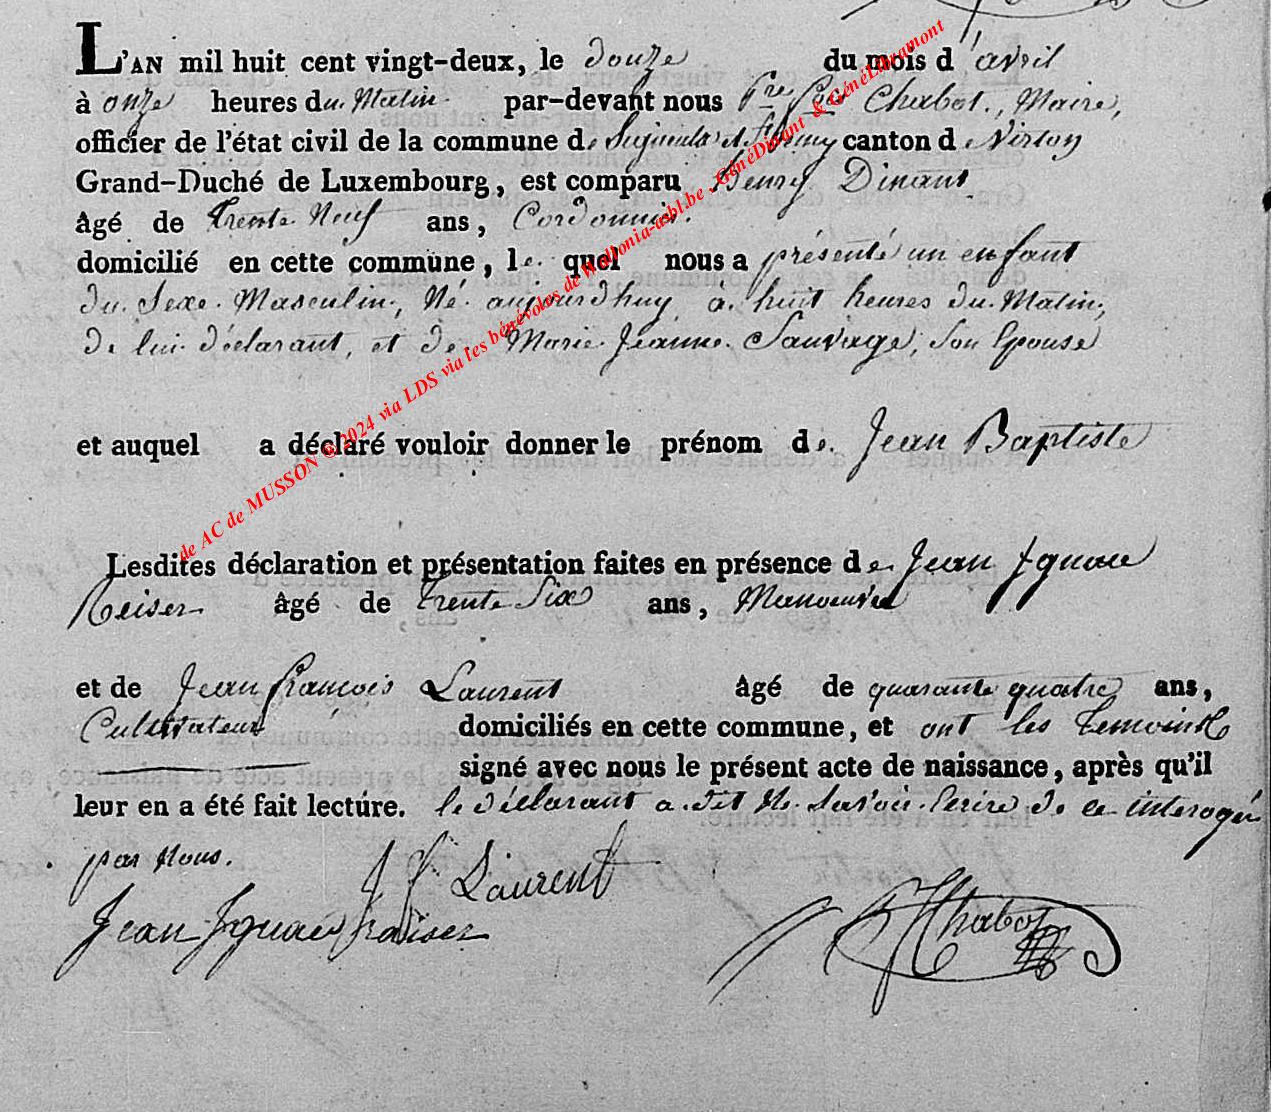 L'AN mil huit cent vingt-deux, le douze du mois d'avril
à onze heures du Matin par-devant nous Chabot, Maire,
officier de l'état civil de la commune de Signeulx et canton de Virton
Grand-Duché de Luxembourg, est comparu Henry Dinant
âgé de trente Neuf ans, Cordonnier.
domicilié en cette commune, le quel nous a présenté un enfant
du Sexe Masculin, Né aujourdhuy à huit heures du Matin,
De lui déclarant, et de Marie Jeanne Sauvage, Son Epouse
et auquel a déclaré vouloir donner le prénom de Jean Baptiste
Lesdites déclaration et présentation faites en présence de Jean Ignace
Reiser âgé de trente Six ans, Manoeuvre
et de Jean François Laurent âgé de quarante quatre ans,
Cultivateur domiciliés en cette commune, et ont les temoins
signé avec nous le présent acte de naissance, après qu'il
leur en a été fait lecture. le déclarant a dit Ne Savoir Ecrire de ce interogé
par Nous.
J f Laurent
Jean Ignace Chabot
de AC de MUSSON @ 2024 via LDS via les bénévoles de Wallonia-asbl.be .GénéDinant & GénéLibramont